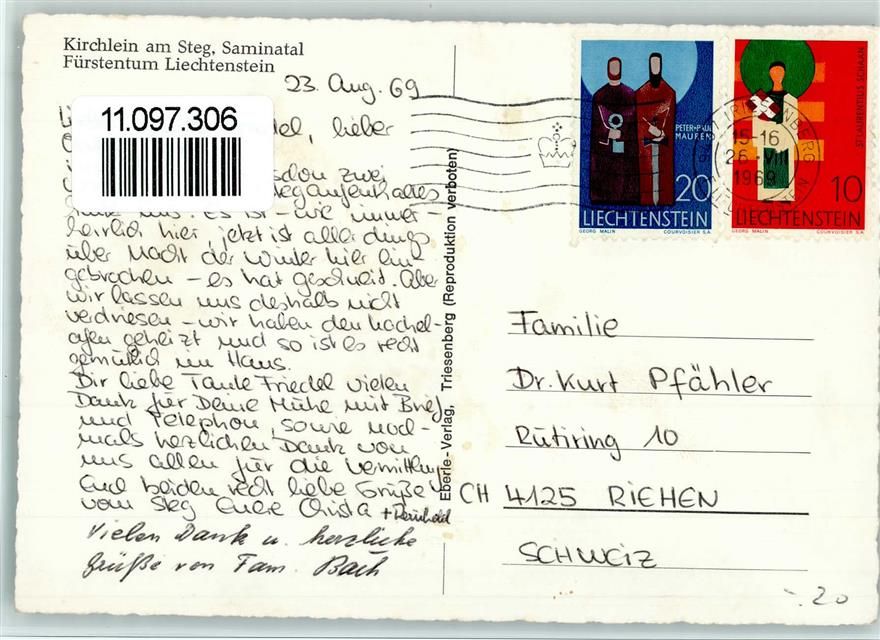 Kirchlein am Steg, Saminatal
Fürstentum Liechtenstein
23. Aug. 69
11.097.306
lieber
schon zwei
uns. Es ist - wie immer -
herrlich hier, jetzt ist allerdings
über Nacht der Winter hier ein-
gebrochen - es hat geschneit. Aber
wir lassen uns deshalb nicht
verdriesen - wir haben den Kachel-
ofen geheizt und so ist es recht
gemütlich im Haus.
Dir liebe Tante Friedel vielen
Dank für Deine Mühe mit Brief
und Telephon, sowie noch-
mals herzlichen Dank von
uns allen für die Vermittlung
Euch beiden recht liebe Grüße
vom Steg Euere Christa + Reinhold
Vielen Dank u. herzliche
Grüße von Fam. Bach
Eberle-Verlag, Triesenberg (Reproduktion verboten)
PETER+PAUL
MAUREN
20
LIECHTENSTEIN
GEORG MALIN COURVOISIER S.A.
ST. LAURENTIUS SCHAAN
10
LIECHTENSTEIN
GEORG MALIN COURVOISIER S.A.
15-16
26-VIII
1969
Familie
Dr. Kurt Pfähler
Rütiring 10
CH 4125 RIEHEN
SCHWEIZ
-.20